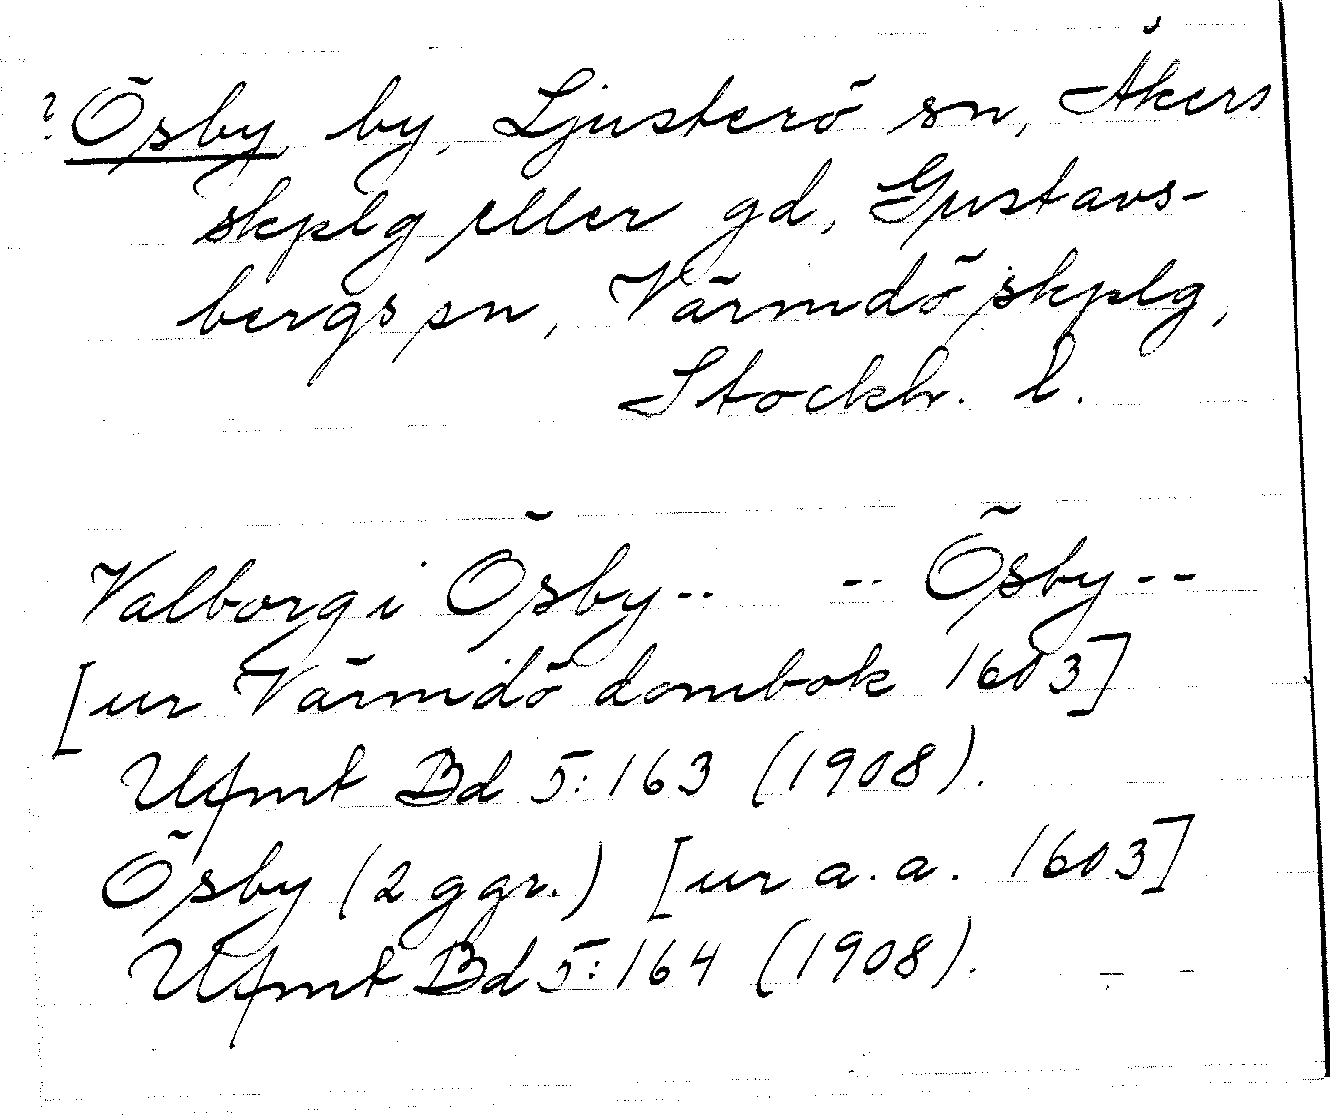 ? Ösby, by, Ljusterö sn, Åkers
skplg eller gd, Gustavs-
bergs sn, Värmdö skplg,
Stockh. l.
Valborg i Ösby -- -- Ösby --
[ur Värmdö dombok 1603]
Ufmt Bd 5:163 (1908).
Ösby (2 ggr.) [ur a.a. 1603]
Ufmt Bd 5:164 (1908).